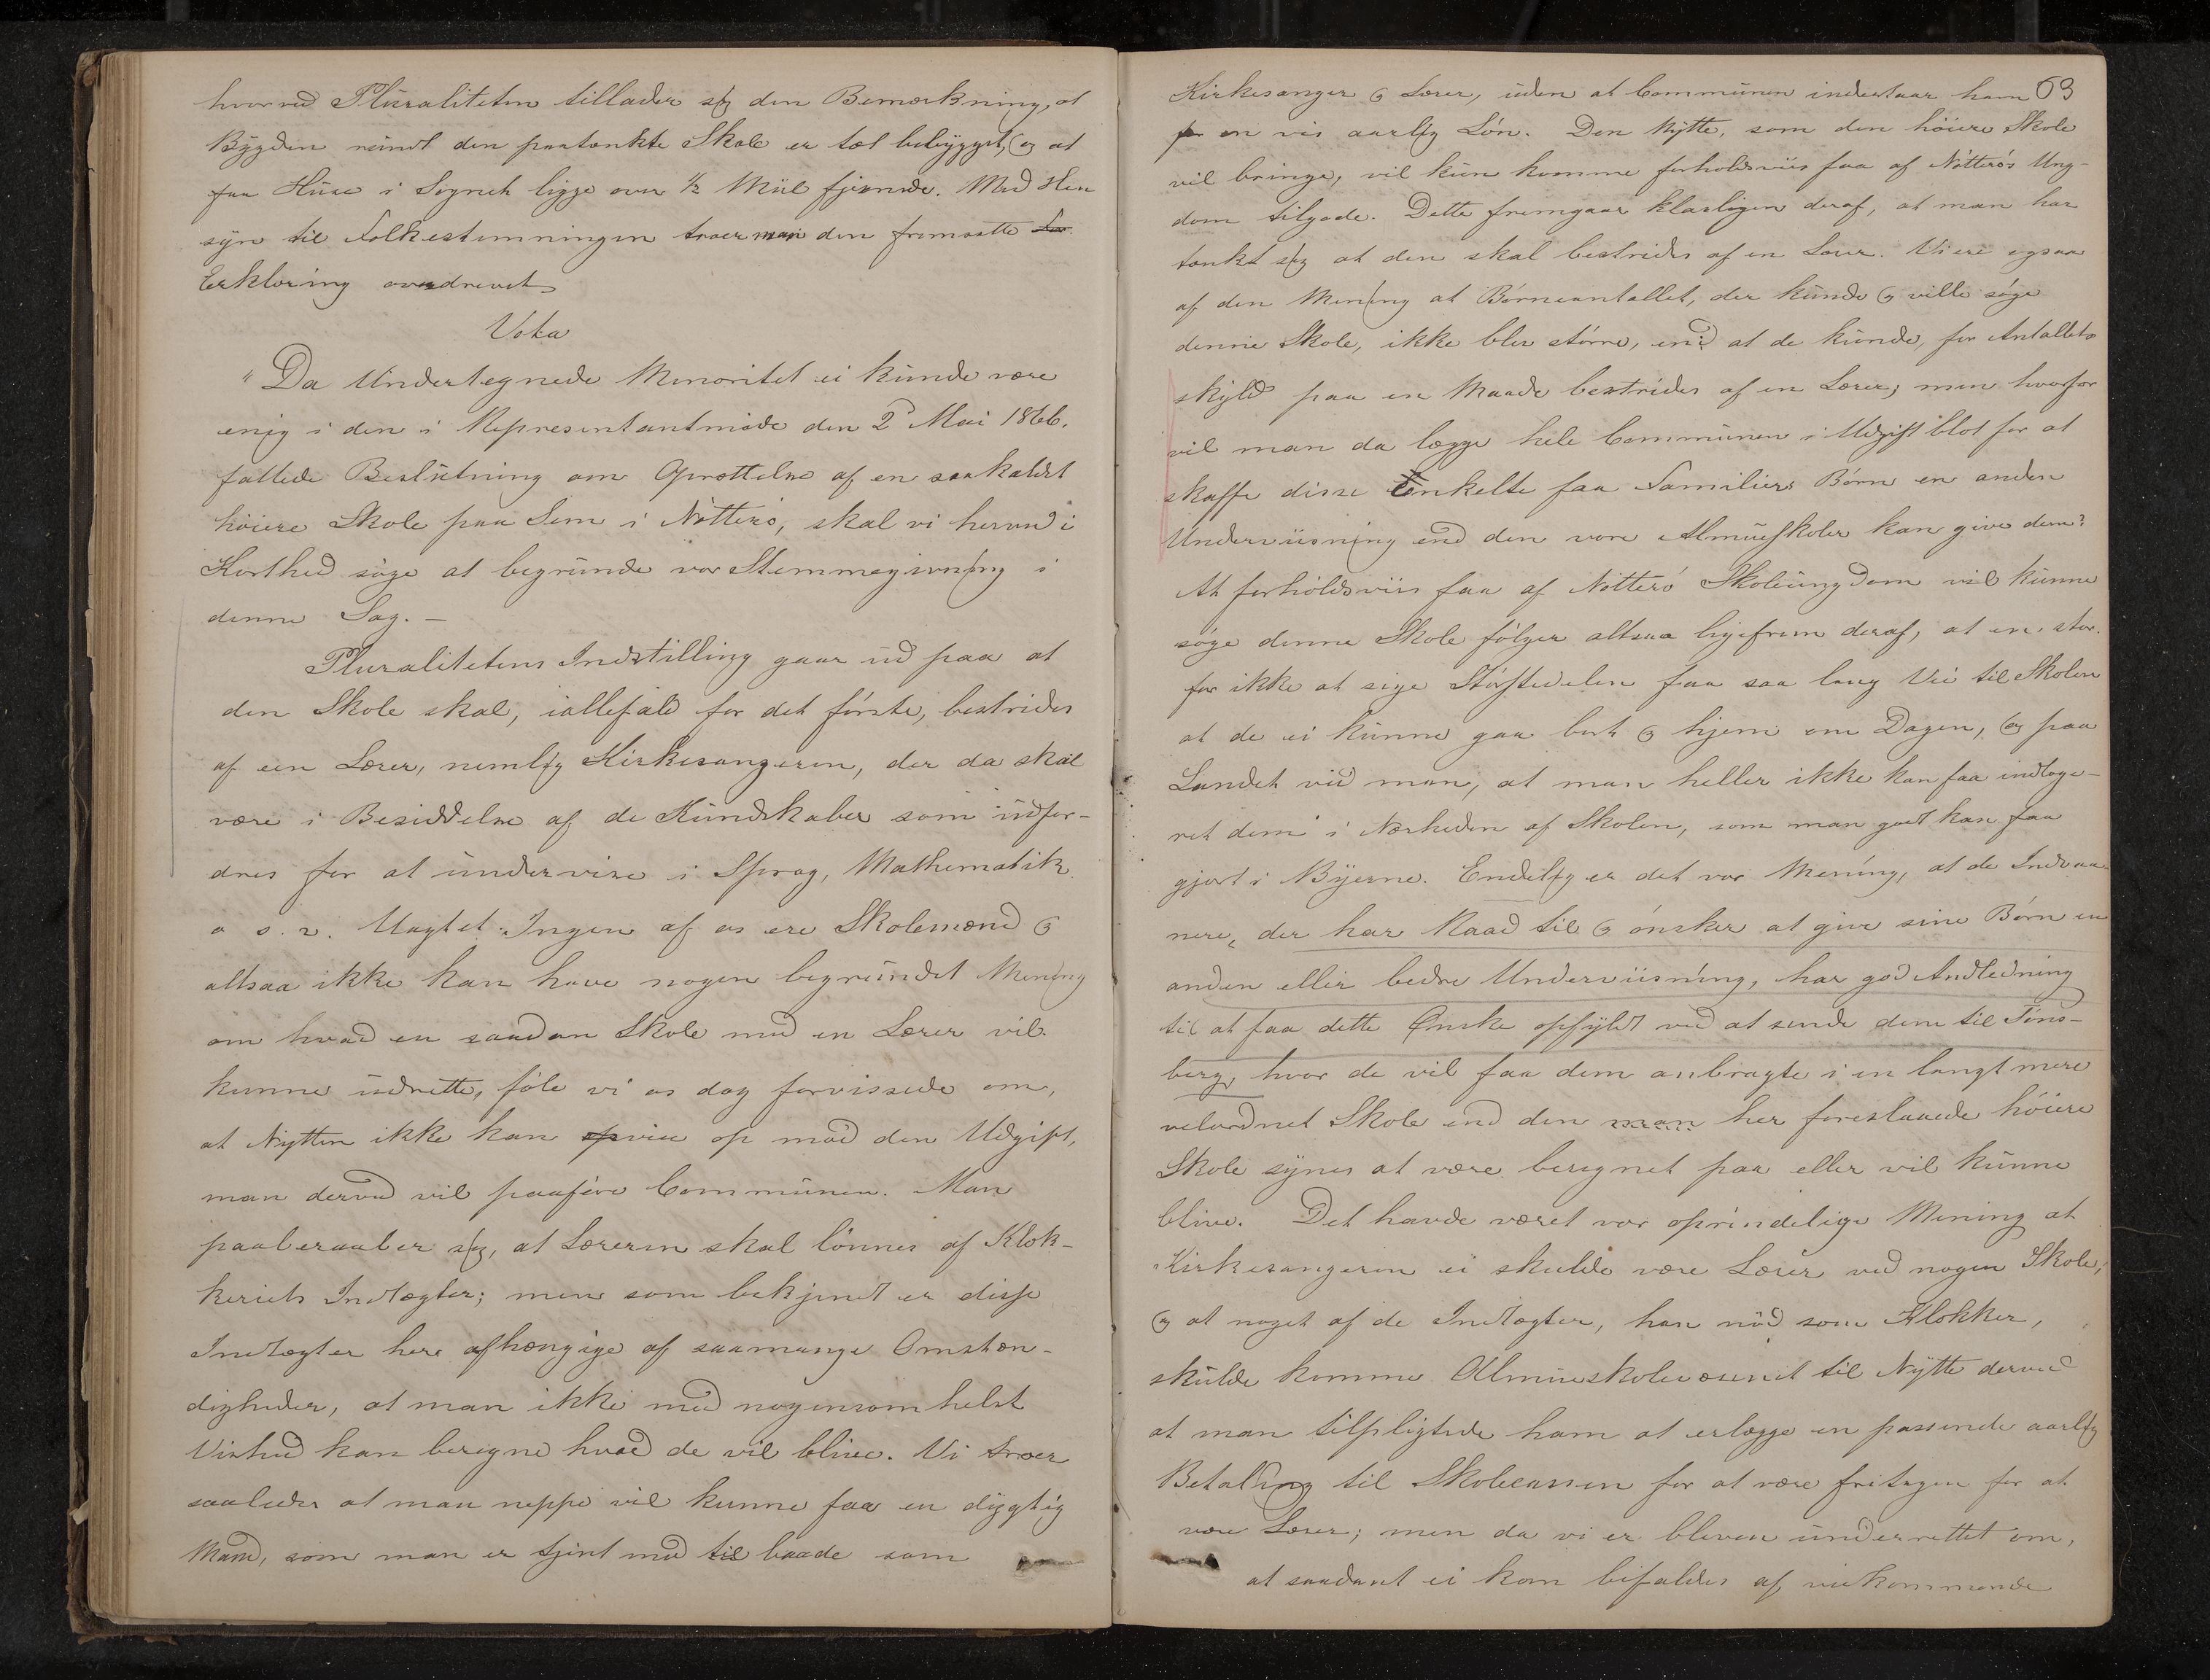 hvorved Pluraliteten tillader sig den Bemærkning, at
Bygden rundt den paatænkte Skole er tæt bebygget, og at
faa Huse i Sognet ligge over ½ Miil fjernede. Med Hen
syn til Folkestemningen troer man den fremsatte
Erklæring overdrevet
Vota
"Da Undertegnede Minoritet ei kunde være
enig i den i Representantmøde den 2 Mai 1866.
fattede Beslutning om Oprettelse af en saakaldt
høiere Skole paa Sem i Nøtterø, skal vi herved i
Korthed søge at begrunde vor Stemmegivning i
denne Sag. –
Pluralitetens Indstilling gaar ud paa at
den Skole skal, iallefald for det første, bestrides
af een Lærer, nemlig Kirkesangeren, der da skal
være i Besiddelse af de Kundskaber som udfor-
dres for at undervise i Sprog, Mathematik
o s. v. Uagtet Ingen af os ere Skolemænd og
altsaa ikke kan have nogen begrundet Mening
om hvad en saadan Skole med en Lærer vil
kunne udrette, føle vi os dog forvissede om,
at Nytten ikke kan veie op mod den Udgift,
man derved vil paaføre Communen. Man
paaberaaber sig, at Læreren skal lønnes af Klok-
keriets Indtægter; men som bekjendt er disse
Indtægter here afhængige af saamange Omstæn-
digheder, at man ikke med nogensomhelst
Vished kan beregne hvad de vil blive. Vi troer
saaledes at man neppe vil kunne faa en dygtig
Mand, som man er tjent med til baade som
63
Kirkesanger og Lærer, uden at Communen indestaar ham
for en vis aarlig Løn. Den Nytte, som den høiere Skole
vil bringe, vil kun komme forholdsviis faa af Nøtterøs Ung-
dom tilgode. Dette fremgaar klarligen deraf, at man har
tænkt sig at den skal bestrides af en Lærer. Vi ere ogsaa
af den Mening at Børneantallet, der kunde og ville søge
denne Skole, ikke blev større, end at de kunde, for Antallets
skyld paa en Maade bestrides af en Lærer; men hvorfor
vil man da lægge hele Communen i Udgift blot for at
skaffe disse Enkelte faa Familiers Børn en anden
Underviisning end den vore Almueskoler kan give dem?
At forholdsviis faa af Nøtterø Skoleungdom vil kunne
søge denne Skole følger altsaa ligefrem deraf, at en stor
for ikke at sige Størstedelen faa saa lang Vei til Skolen
at de ei kunne gaa bort og hjem om Dagen, og paa
Landet veed man, at man heller ikke kan faa indloge-
ret dem i Nærheden af Skolen, som man godt kan faa
gjort i Byerne. Endelig er det vor Mening, at de Indvaa-
nere, der har Raad til og ønsker at give sine Børn en
anden eller bedre Underviisning, har god Andledning
til at faa dette Ønske opfyldt ved at sende dem til Tøns-
berg, hvor de vil faa dem anbragte i en langt mere
velordnet Skole end den man her foreslaaede høiere
Skole synes at være beregnet paa eller vil kunne
blive. Det havde været vor oprindelige Mening at
Kirkesangeren ei skulde være Lærer ved nogen Skole;
og at noget af de Indtægter, han nød som Klokker,
skulde komme Almueskolevæsenet til Nytte derved
at man tilpligtede ham at erlægge en passende aarlig
Betaling til Skolecassen for at være fritagen for at
være Lærer; men da vi er bleven underrettet om,
at saadant ei kan bifaldes af vedkommende